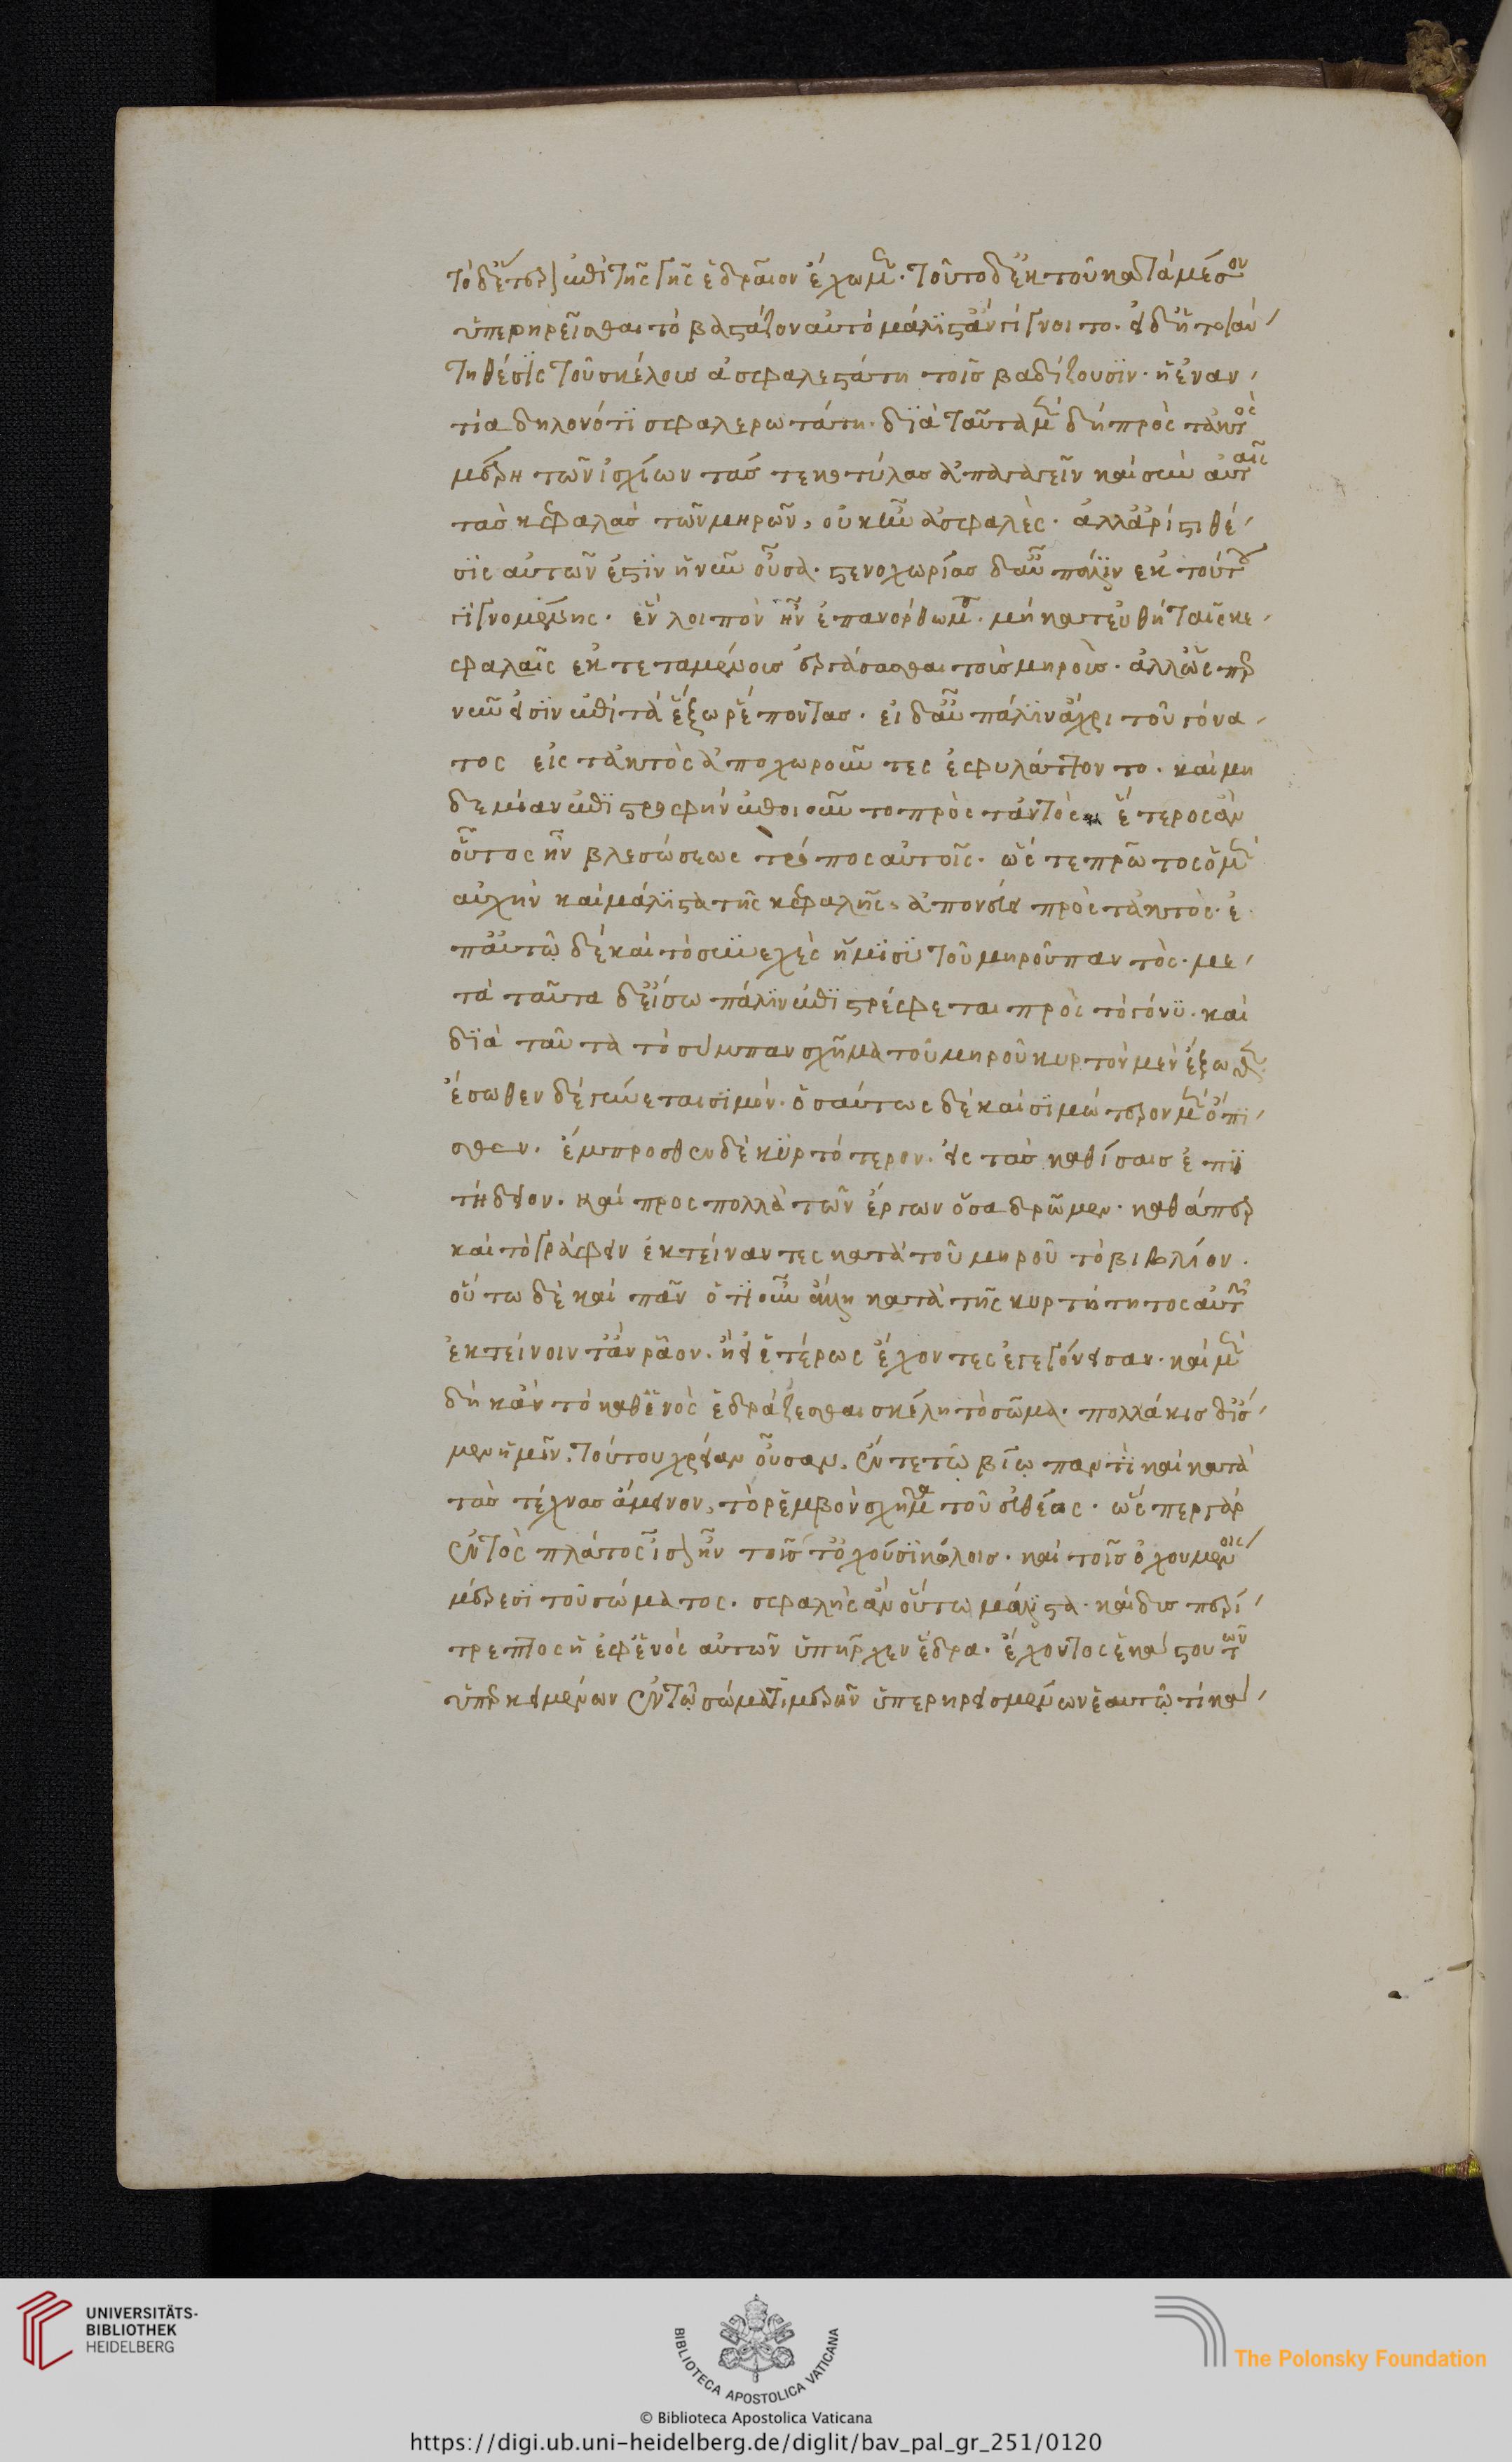 τὸ δ' ἕτερον ἐπὶ τῆς γῆς ἑδραῖον ἔχωμεν. τοῦτο δ' ἐκ τοῦ κατὰ μέσον
ὑπερηρεῖσθαι τὸ βαστάζον αὐτὸ μάλιστ' ἂν γίγνοιτο. εἰ δ' ἡ τοιαύ-
τη θέσις τοῦ σκέλους ἀσφαλεστάτη τοῖς βαδίζουσιν. ἡ ἐναν-
τία δηλονότι σφαλερωτάτη. διὰ ταῦτα μὲν δὴ πρὸς τἀκτὸς
μέρη τῶν ἰσχίων τάς τε κοτύλας ἀπαγαγεῖν καὶ σὺν αὐταῖς
τὰς κεφαλὰς τῶν μηρῶν, οὐκ ἦν ἀσφαλές. ἀλλ' ἀρίστη θέ-
σις αὐτῶν ἐστὶν ἡ νῦν οὖσα. στενοχωρίας δ' αὖ πάλιν ἐκ τούτου
γιγνομένης. ἓν λοιπὸν ἦν ἐπανόρθωμα. μὴ κατευθὺ ταῖς κε-
φαλαῖς ἐκτεταμένους ἐργάσασθαι τοὺς μηρούς. ἀλλ' ὥσπερ
νῦν εἰσὶν ἐπὶ τὰ ἔξω ῥέποντας. εἰ δ' αὖ πάλιν ἄχρι τοῦ γόνα-
τος εἰς τἀκτὸς ἀποχωροῦντες ἐφυλάττοντο. καὶ μη
δεμίαν ἐπιστροφὴν ἐποιοῦντο πρὸς τἀντὸς ἕτερος ἂν
οὗτος ἦν βλεσώσεως τρόπος αὐτοῖς. ὥστε πρῶτος ὁ μὲν
αὐχὴν καὶ μάλιστα τῆς κεφαλῆς, ἀπονεύει πρὸς τἀκτός. ἐ
π' αὐτῷ δὲ καὶ τὸ συνεχὲς ἥμισυ τοῦ μηροῦ παντός. με-
τὰ ταῦτα δ' εἴσω πάλιν ἐπιστρέφεται πρὸς τὸ γόνυ. καὶ
διὰ ταῦτα τὸ σύμπαν σχῆμα τοῦ μηροῦ κυρτὸν μὲν ἔξωθεν
ἔσωθεν δὲ γίνεται σιμόν. ὡσαύτως δὲ καὶ σιμώτερον μὲν ὄπι-
σθεν. ἔμπροσθεν δὲ κυρτότερον. εἰς τὰς καθίσεις ἐπι
τήδειον. καὶ προς πολλὰ τῶν ἔργων ὅσα δρῶμεν. καθάπερ
καὶ τὸ γράφειν ἐκτείναντες κατὰ τοῦ μηροῦ τὸ βιβλίον.
οὕτω δὲ καὶ πᾶν ὁτιοῦν ἄλλο κατὰ τῆς κυρτότητος αὐτοῦ
ἐκτείνοιντ' ἂν ῥᾷον. ἢ εἰ ἑτέρως ἔχοντες ἐγεγόνεισαν. καὶ μὲν
δὴ κἀν τὸ καθ' ἑνὸς ἑδράζεσθαι σκέλη τὸ σῶμα. πολλάκις δεό-
μεν ἡμῖν. τούτου χρείαν οὖσαν, ἔν τε τῷ βίῳ παντὶ καὶ κατὰ
τὰς τέχνας ἄμεινον, τὸ ῥεμβὸν σχῆμα τοῦ εὐθέως. ὥσπερ γὰρ
ἐντὸς πλάτος ἴσον ἦν τοῖς τ' ὀχοῦσι κώλοις. καὶ τοῖς ὀχουμένοις
μέρεσι τοῦ σώματος. σφαλὴς ἂν οὕτω μάλιστα. καὶ δυσπερί-
τρεπτος ἡ ἐφ' ἑνὸς αὐτῶν ὑπῆρχεν ἕδρα. ἔχοντος ἑκάστου τῶν
ὑπερκειμένων ἐν τῷ σώματι μερῶν ὑπερηρεισμένων ἑαυτῷ τι κα-
UNIVERSITÄTS-
BIBLIOTHEK
HEIDELBERG
BIBLIOTECA APOSTOLICA VATICANA
The Polonsky Foundation
© Biblioteca Apostolica Vaticana
https://digi.ub.uni-heidelberg.de/diglit/bav_pal_gr_251/0120